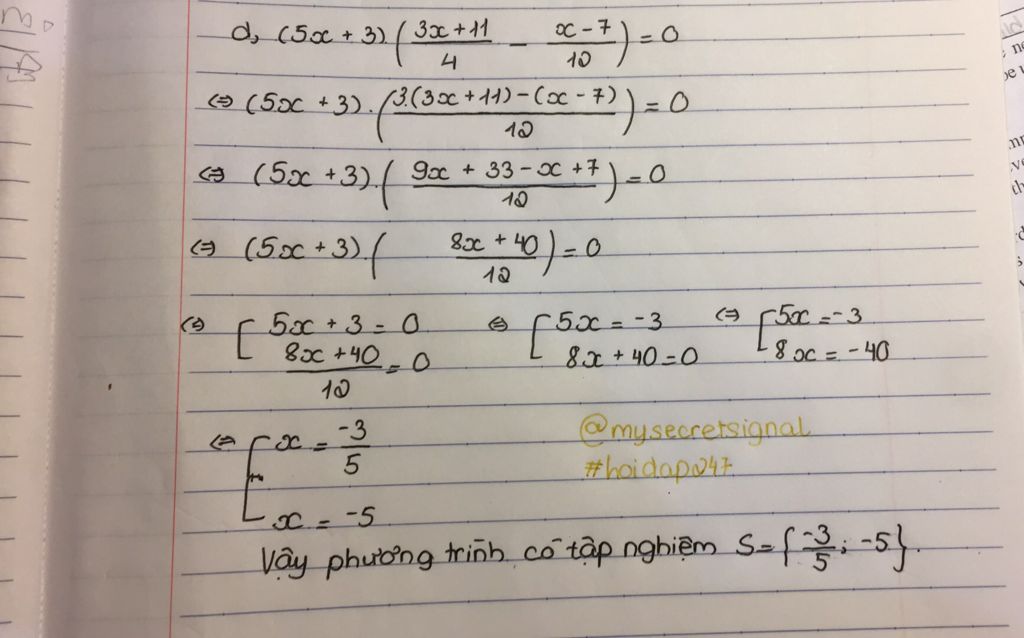 d, (5x + 3) ( (3x + 11)/4 - (x - 7)/12 ) = 0
⇔ (5x + 3) . ( (3.(3x + 11) - (x - 7))/12 ) = 0
⇔ (5x + 3) . ( (9x + 33 - x + 7)/12 ) = 0
⇔ (5x + 3) . ( (8x + 40)/12 ) = 0
⇔ [ 5x + 3 = 0 ; (8x + 40)/12 = 0 ⇔ [ 5x = -3 ; 8x + 40 = 0 ⇔ [ 5x = -3 ; 8x = -40
⇔ [ x = -3/5 ; x = -5
@mysecretsignal
#hoidap247
Vậy phương trình có tập nghiệm S = { -3/5 ; -5 }.